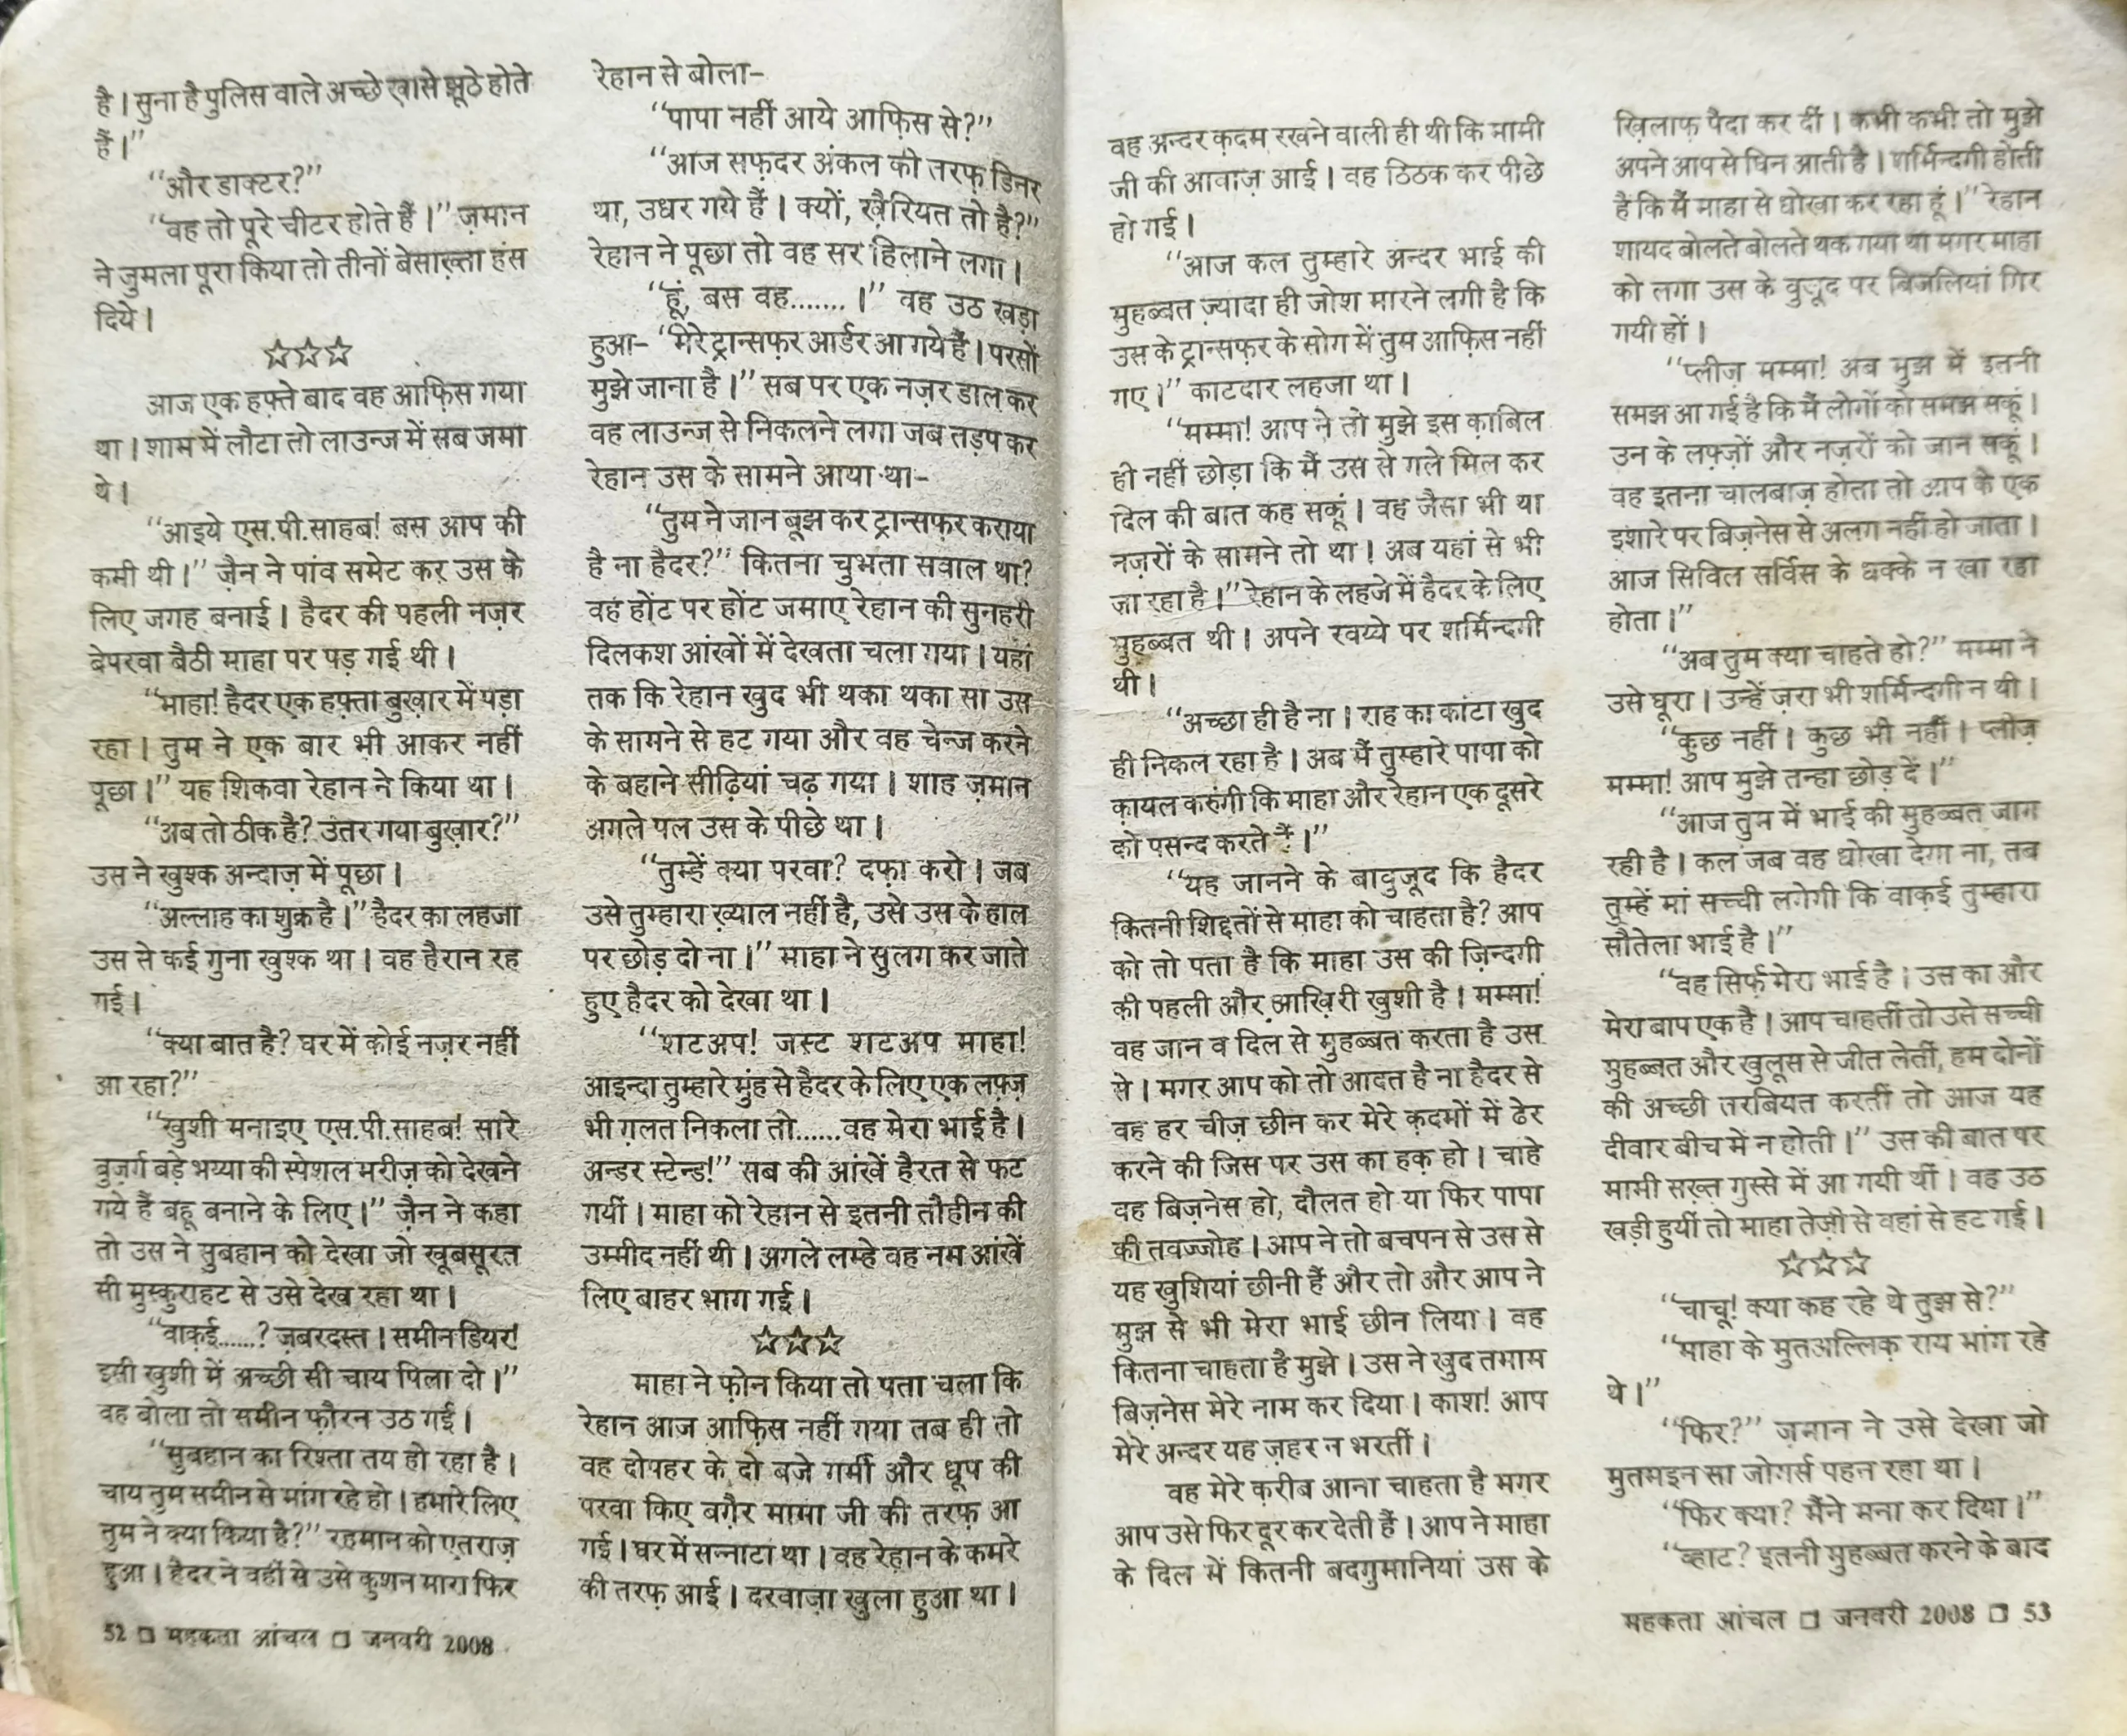 है। सुना है पुलिस वाले अच्छे खासे झूठे होते
हैं।”
“और डाक्टर?”
“वह तो पूरे चीटर होते हैं।” ज़मान
ने जुमला पूरा किया तो तीनों बेसाख़्ता हंस
दिये।
☆☆☆
आज एक हफ़्ते बाद वह आफ़िस गया
था। शाम में लौटा तो लाउन्ज में सब जमा
थे।
“आइये एस.पी.साहब! बस आप की
कमी थी।” ज़ैन ने पांव समेट कर उस के
लिए जगह बनाई। हैदर की पहली नज़र
बेपरवा बैठी माहा पर पड़ गई थी।
“माहा! हैदर एक हफ़्ता बुख़ार में पड़ा
रहा। तुम ने एक बार भी आकर नहीं
पूछा।” यह शिकवा रेहान ने किया था।
“अब तो ठीक है? उतर गया बुख़ार?”
उस ने खुश्क अन्दाज़ में पूछा।
“अल्लाह का शुक्र है।” हैदर का लहजा
उस से कई गुना खुश्क था। वह हैरान रह
गई।
“क्या बात है? घर में कोई नज़र नहीं
आ रहा?”
“खुशी मनाइए एस.पी.साहब! सारे
बुज़र्ग बड़े भय्या की स्पेशल मरीज़ को देखने
गये हैं बहू बनाने के लिए।” ज़ैन ने कहा
तो उस ने सुबहान को देखा जो खूबसूरत
सी मुस्कुराहट से उसे देख रहा था।
“वाक़ई......? ज़बरदस्त। समीन डियर!
इसी खुशी में अच्छी सी चाय पिला दो।”
वह बोला तो समीन फ़ौरन उठ गई।
“सुबहान का रिश्ता तय हो रहा है।
चाय तुम समीन से मांग रहे हो। हमारे लिए
तुम ने क्या किया है?” रहमान को एतराज़
हुआ। हैदर ने वहीं से उसे कुशन मारा फिर
52 □ महकता आंचल □ जनवरी 2008
रेहान से बोला-
“पापा नहीं आये आफ़िस से?”
“आज सफ़दर अंकल की तरफ़ डिनर
था, उधर गये हैं। क्यों, ख़ैरियत तो है?”
रेहान ने पूछा तो वह सर हिलाने लगा।
“हूं, बस वह.......।” वह उठ खड़ा
हुआ- “मेरे ट्रान्सफ़र आर्डर आ गये हैं। परसों
मुझे जाना है।” सब पर एक नज़र डाल कर
वह लाउन्ज से निकलने लगा जब तड़प कर
रेहान उस के सामने आया था-
“तुम ने जान बूझ कर ट्रान्सफ़र कराया
है ना हैदर?” कितना चुभता सवाल था?
वह होंट पर होंट जमाए रेहान की सुनहरी
दिलकश आंखों में देखता चला गया। यहां
तक कि रेहान खुद भी थका थका सा उस
के सामने से हट गया और वह चेन्ज करने
के बहाने सीढ़ियां चढ़ गया। शाह ज़मान
अगले पल उस के पीछे था।
“तुम्हें क्या परवा? दफ़ा करो। जब
उसे तुम्हारा ख़्याल नहीं है, उसे उस के हाल
पर छोड़ दो ना।” माहा ने सुलग कर जाते
हुए हैदर को देखा था।
“शटअप! जस्ट शटअप माहा!
आइन्दा तुम्हारे मुंह से हैदर के लिए एक लफ़्ज़
भी ग़लत निकला तो......वह मेरा भाई है।
अन्डर स्टेन्ड!” सब की आंखें हैरत से फट
गयीं। माहा को रेहान से इतनी तौहीन की
उम्मीद नहीं थी। अगले लम्हे वह नम आंखें
लिए बाहर भाग गई।
☆☆☆
माहा ने फ़ोन किया तो पता चला कि
रेहान आज आफ़िस नहीं गया तब ही तो
वह दोपहर के दो बजे गर्मी और धूप की
परवा किए बग़ैर मामा जी की तरफ़ आ
गई। घर में सन्नाटा था। वह रेहान के कमरे
की तरफ़ आई। दरवाज़ा खुला हुआ था।
वह अन्दर क़दम रखने वाली ही थी कि मामी
जी की आवाज़ आई। वह ठिठक कर पीछे
हो गई।
“आज कल तुम्हारे अन्दर भाई की
मुहब्बत ज़्यादा ही जोश मारने लगी है कि
उस के ट्रान्सफ़र के सोग में तुम आफ़िस नहीं
गए।” काटदार लहजा था।
“मम्मा! आप ने तो मुझे इस क़ाबिल
ही नहीं छोड़ा कि मैं उस से गले मिल कर
दिल की बात कह सकूं। वह जैसा भी था
नज़रों के सामने तो था। अब यहां से भी
जा रहा है।” रेहान के लहजे में हैदर के लिए
मुहब्बत थी। अपने रवय्ये पर शर्मिन्दगी
थी।
“अच्छा ही है ना। राह का कांटा खुद
ही निकल रहा है। अब मैं तुम्हारे पापा को
क़ायल करुंगी कि माहा और रेहान एक दूसरे
को पसन्द करते हैं।”
“यह जानने के बावुजूद कि हैदर
कितनी शिद्दतों से माहा को चाहता है? आप
को तो पता है कि माहा उस की ज़िन्दगी
की पहली और आख़िरी खुशी है। मम्मा!
वह जान व दिल से मुहब्बत करता है उस
से। मगर आप को तो आदत है ना हैदर से
वह हर चीज़ छीन कर मेरे क़दमों में ढेर
करने की जिस पर उस का हक़ हो। चाहे
वह बिज़नेस हो, दौलत हो या फिर पापा
की तवज्जोह। आप ने तो बचपन से उस से
यह खुशियां छीनी हैं और तो और आप ने
मुझ से भी मेरा भाई छीन लिया। वह
कितना चाहता है मुझे। उस ने खुद तमाम
बिज़नेस मेरे नाम कर दिया। काश! आप
मेरे अन्दर यह ज़हर न भरतीं।
वह मेरे क़रीब आना चाहता है मगर
आप उसे फिर दूर कर देती हैं। आप ने माहा
के दिल में कितनी बदगुमानियां उस के
ख़िलाफ़ पैदा कर दीं। कभी कभी तो मुझे
अपने आप से घिन आती है। शर्मिन्दगी होती
है कि मैं माहा से धोखा कर रहा हूं।” रेहान
शायद बोलते बोलते थक गया था मगर माहा
को लगा उस के वुजूद पर बिजलियां गिर
गयी हों।
“प्लीज़ मम्मा! अब मुझ में इतनी
समझ आ गई है कि मैं लोगों को समझ सकूं।
उन के लफ़्ज़ों और नज़रों को जान सकूं।
वह इतना चालबाज़ होता तो आप के एक
इशारे पर बिज़नेस से अलग नहीं हो जाता।
आज सिविल सर्विस के धक्के न खा रहा
होता।”
“अब तुम क्या चाहते हो?” मम्मा ने
उसे घूरा। उन्हें ज़रा भी शर्मिन्दगी न थी।
“कुछ नहीं। कुछ भी नहीं। प्लीज़
मम्मा! आप मुझे तन्हा छोड़ दें।”
“आज तुम में भाई की मुहब्बत जाग
रही है। कल जब वह धोखा देगा ना, तब
तुम्हें मां सच्ची लगेगी कि वाक़ई तुम्हारा
सौतेला भाई है।”
“वह सिर्फ़ मेरा भाई है। उस का और
मेरा बाप एक है। आप चाहतीं तो उसे सच्ची
मुहब्बत और खुलूस से जीत लेतीं, हम दोनों
की अच्छी तरबियत करतीं तो आज यह
दीवार बीच में न होती।” उस की बात पर
मामी सख़्त गुस्से में आ गयी थीं। वह उठ
खड़ी हुयीं तो माहा तेज़ी से वहां से हट गई।
☆☆☆
“चाचू! क्या कह रहे थे तुझ से?”
“माहा के मुतअल्लिक़ राय मांग रहे
थे।”
“फिर?” ज़मान ने उसे देखा जो
मुतमइन सा जोगर्स पहन रहा था।
“फिर क्या? मैंने मना कर दिया।”
“व्हाट? इतनी मुहब्बत करने के बाद
महकता आंचल □ जनवरी 2008 □ 53